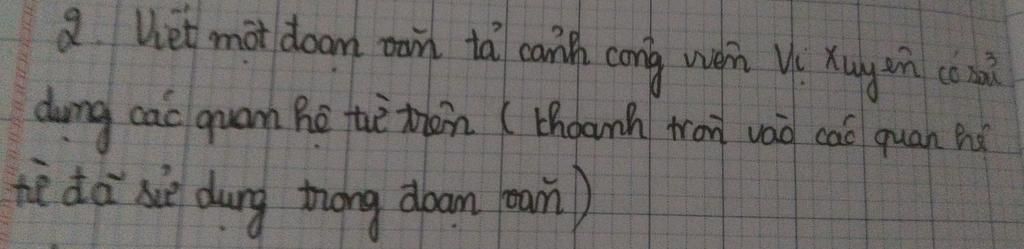 2. Viết một đoạn văn tả cảnh công viên Vị Xuyên có sử
dụng các quan hệ từ trên (khoanh tròn vào các quan hệ
từ đã sử dụng trong đoạn văn)